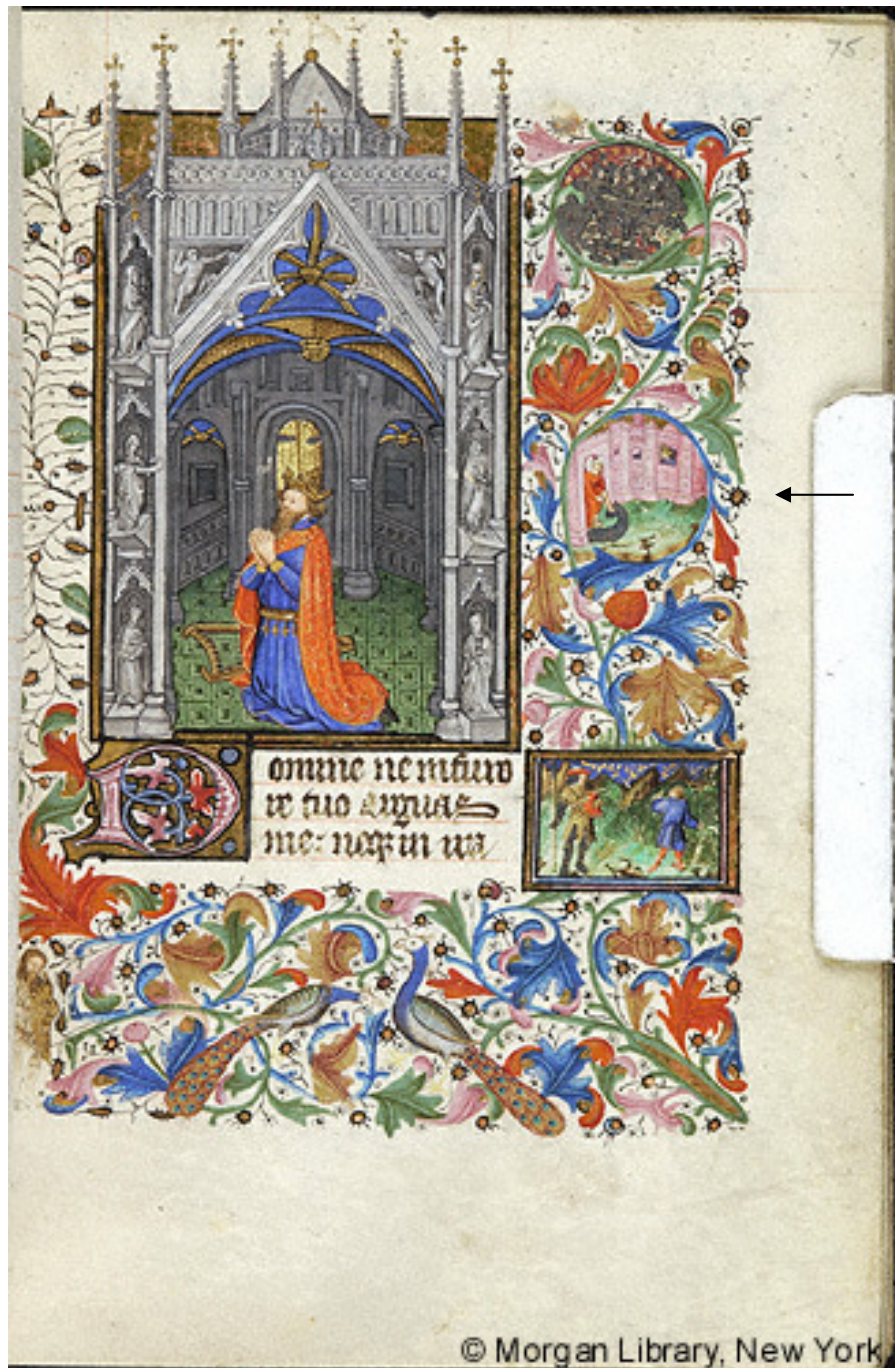 75
Domine ne in furo
re tuo arguas
me: neq; in ira
© Morgan Library, New York